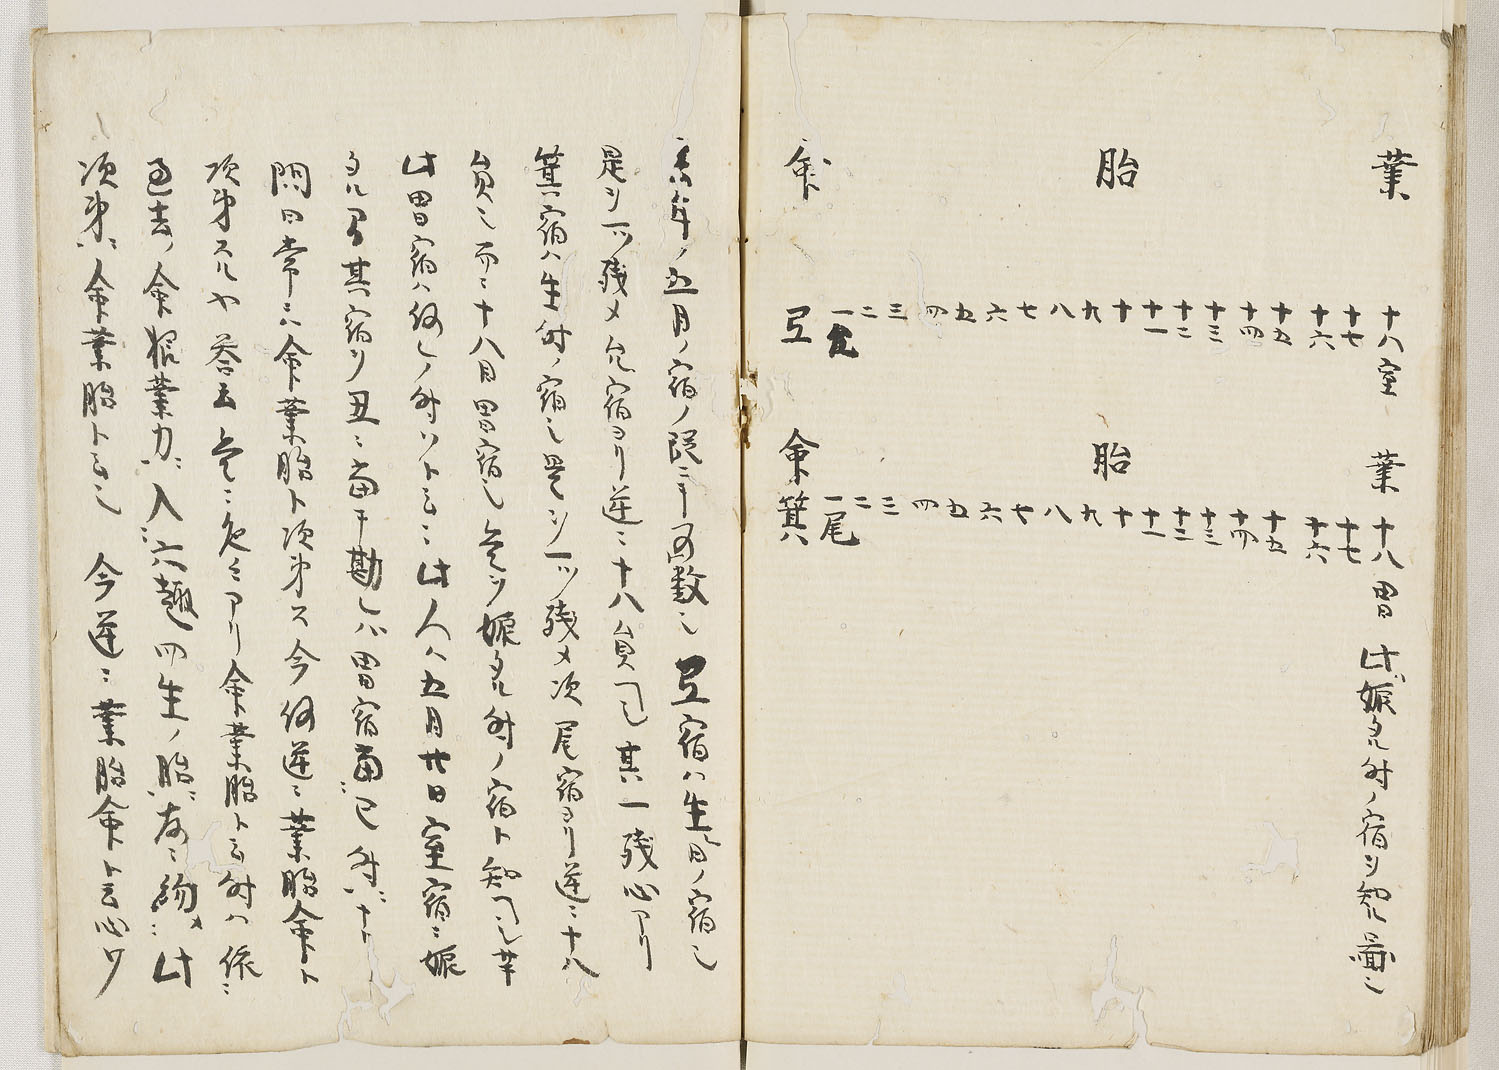 業 胎 命
十八室 十七 十六 十五 十四 十三 十二 十一 十 九 八 七 六 五 四 三 二 一
業 胎 命
十八胃 十七 十六 十五 十四 十三 十二 十一 十 九 八 七 六 五 四 三 二 一尾 箕
此娠タル時ノ宿ヲ知ル図也
年ノ五月ノ宿ノ 数也 宿ハ生月ノ宿也
是ヲ一ツ残メ 宿ヨリ逆ニ十八員ヘシ其一残心アリ
箕宿ハ生時ノ宿也是ヲ一ツ残メ次尾宿ヨリ逆ニ十八
員也 而ニ十八目胃宿也 娠タル時ノ宿ト知ヘシ
此胃宿ハ何レノ時ソト云ニ此人ハ五月廿日室宿ニ娠
タル 其宿ヲ丑ニ当テ勘レハ胃宿当ニ巳時ニ
問曰常ニハ命業胎ト次第ス今何逆ニ業胎命ト
次第スルヤ答云 アリ命業胎ト云時ハ依ニ
過去ノ命 業力ニ入ニ六趣四生ノ胎ニ 此
次第ニ命業胎ト云也 今逆ニ業胎命ト云心ハ